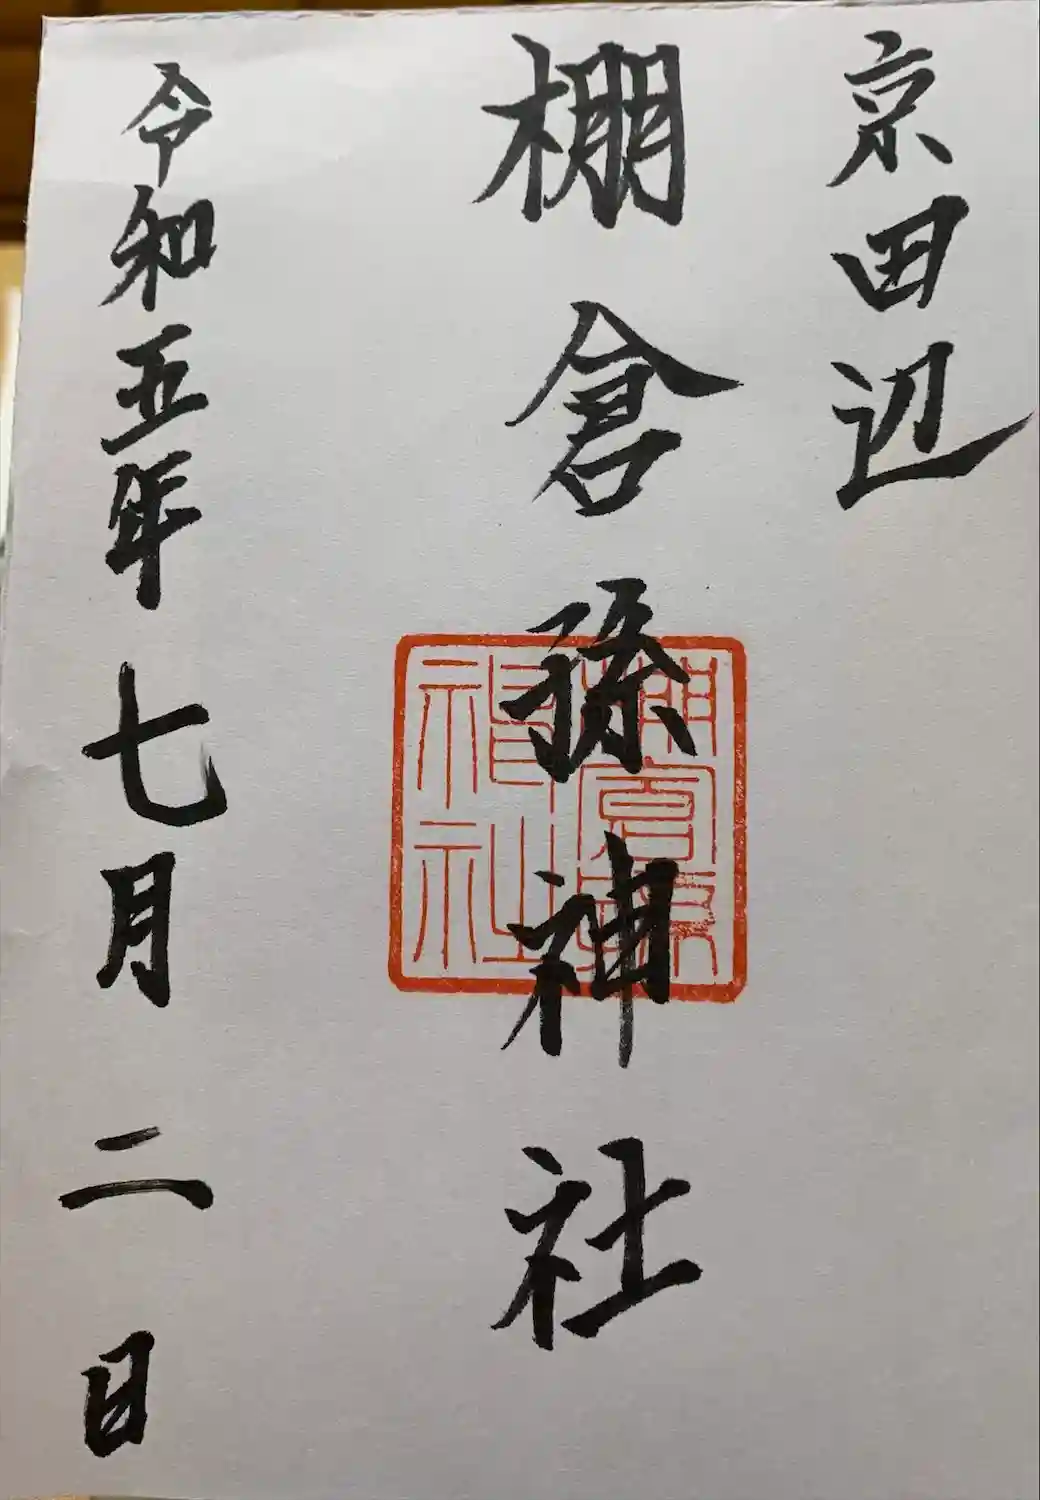 京田辺
棚倉孫神社
令和五年七月二日
棚倉孫
神社